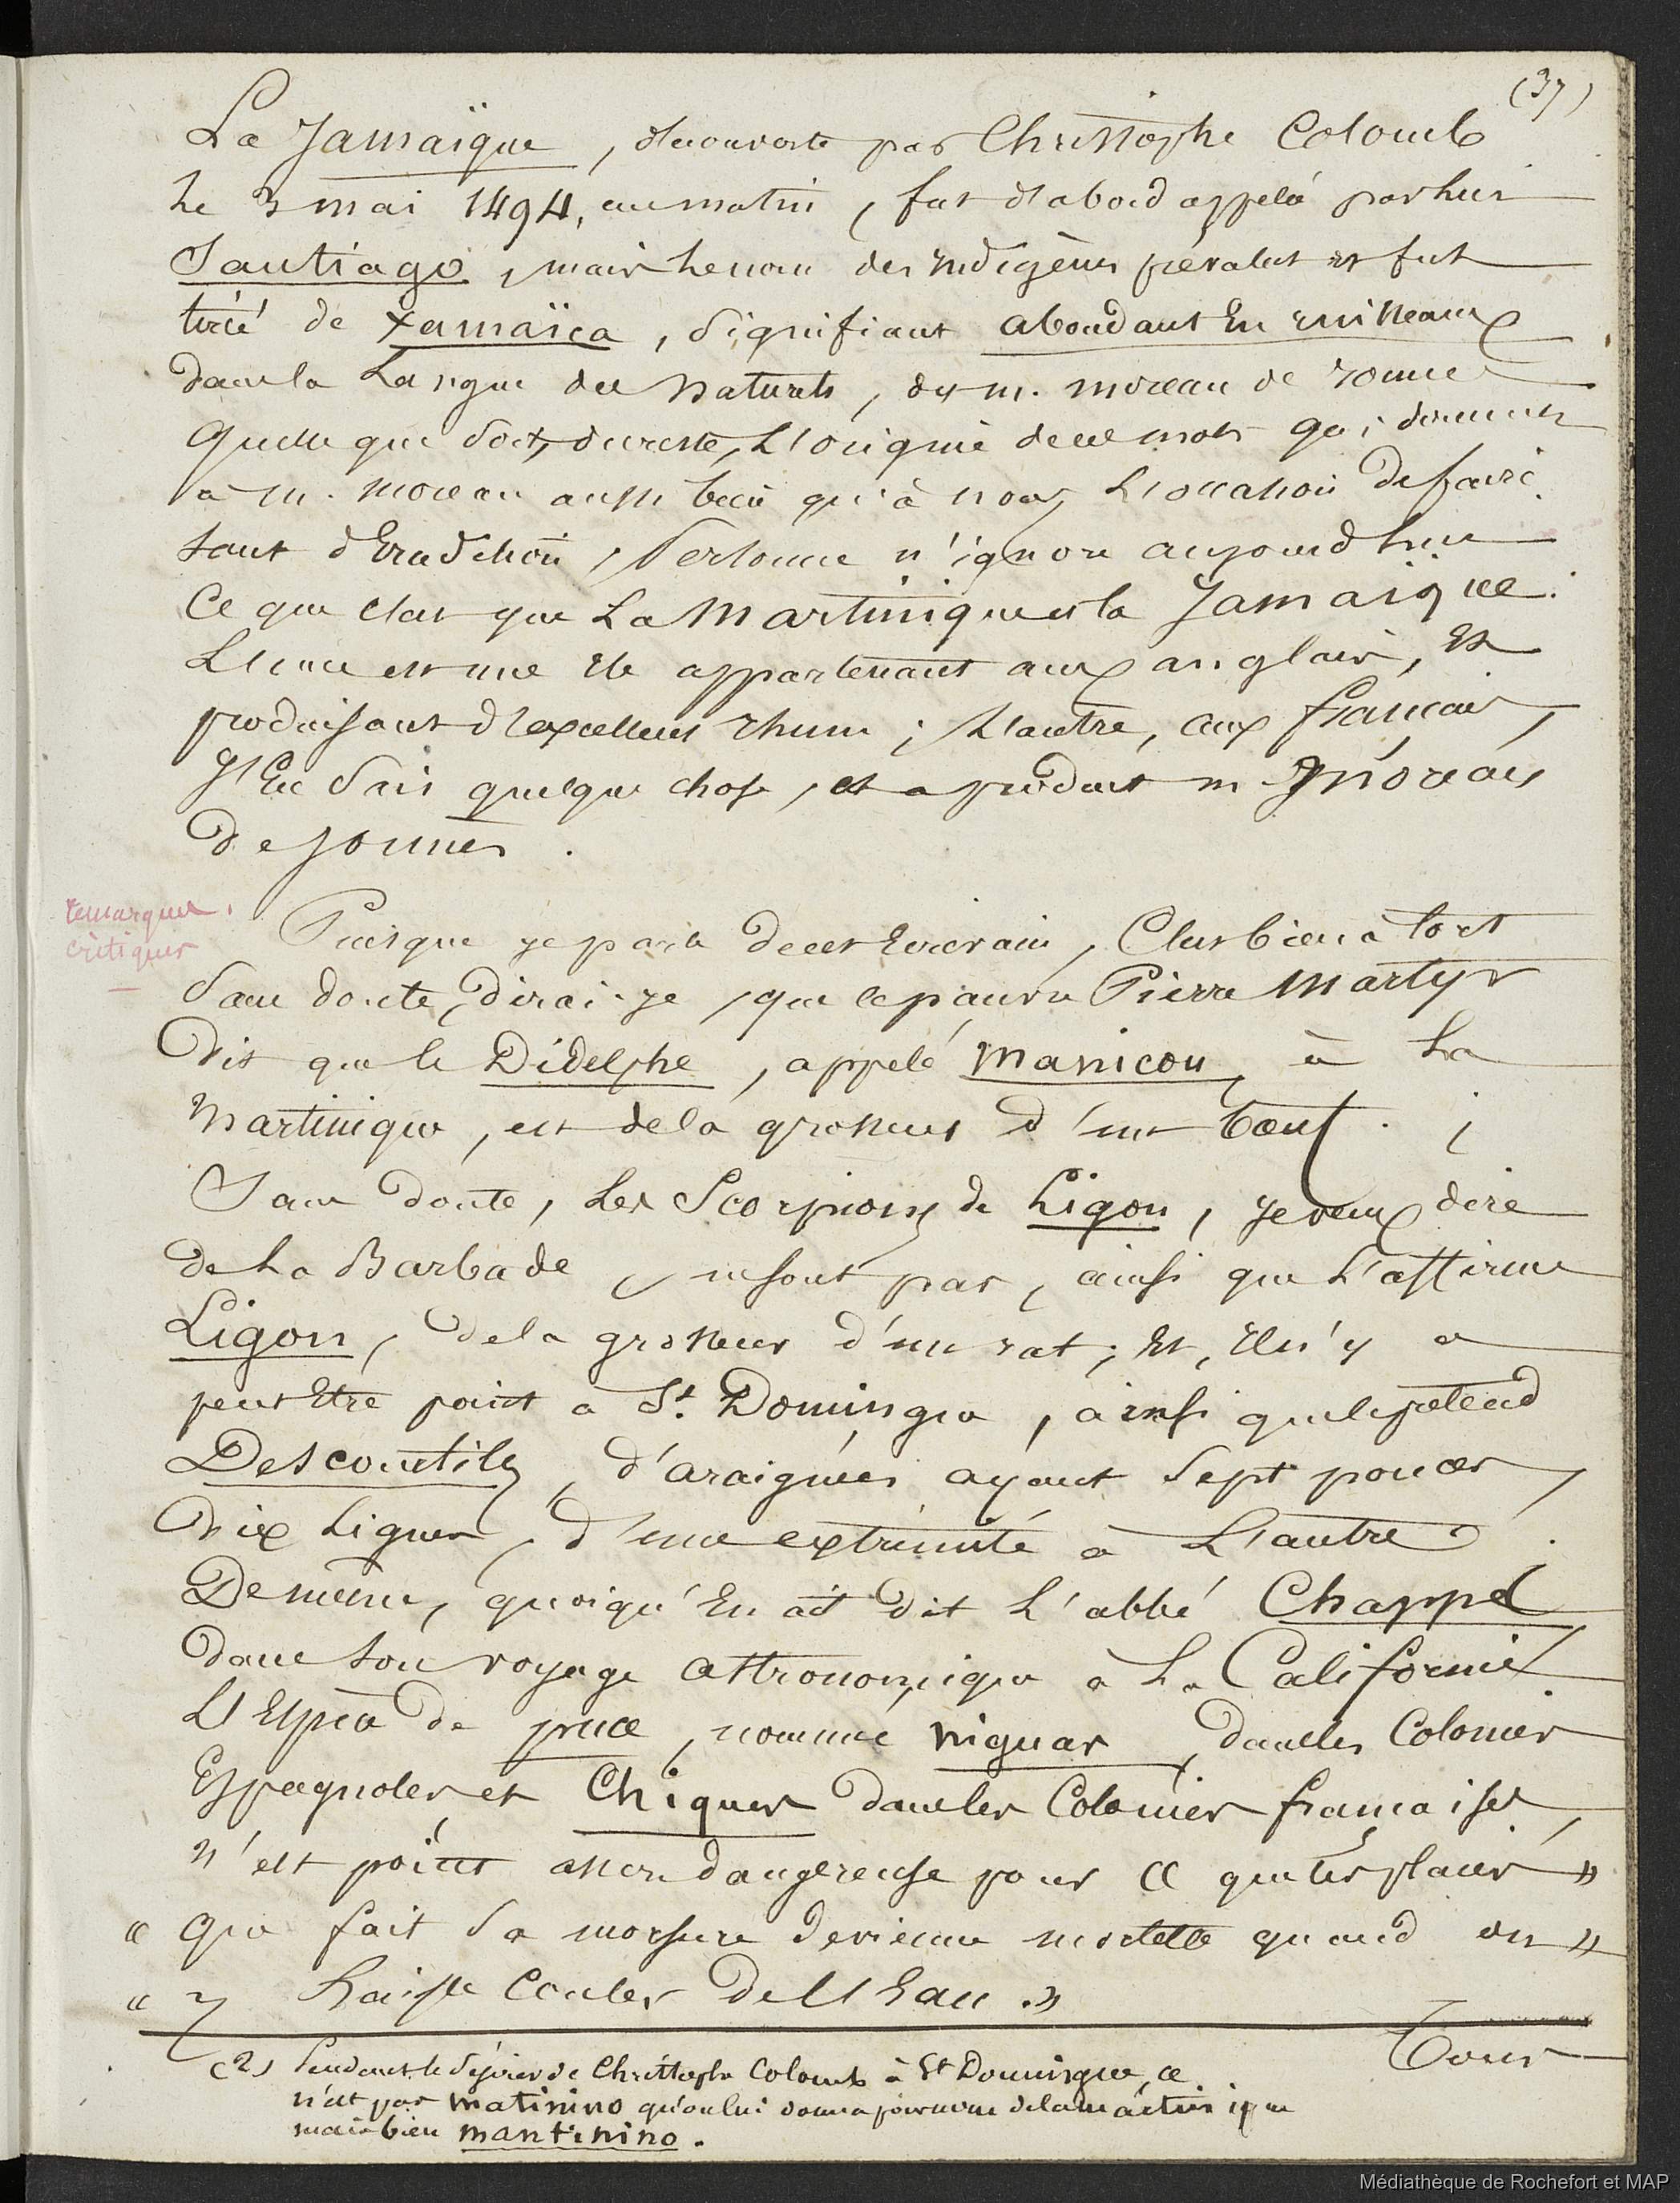 (37)
La Jamaïque, découverte par Christophe Colomb
le 3 mai 1494, au matin, fut d'abord appelé par lui
Santiago, mais le nom des indigènes prévalut et fut
tiré de Xamaïca, signifiant abondant En ruisseaux
dans la Langue des naturels, dit m. moreau de Jonnes
Quelle que soit, du reste, L'origine de ce mot qui donne
à m. moreau aussi bien qu'à nous, L'occasion de faire
tant d'Erudition, Personne n'ignore aujourd'hui
Ce que c'est que La Martinique et la Jamaïque.
L'une est une île appartenant aux anglais, Et
produisant d'excellent rhum ; L'autre, aux français,
J'En sais quelque chose, et a produit m. Moreau
de Jonnes.
remarques
critiques
Puisque je parle de cet Ecrivain, C'est bien à tort
sans doute, dirai-je, que le pauvre Pierre Martyr
dit que le Didelphe, appelé manicou, à La
Martinique, est de la grosseur d'un bœuf. ;
Sans doute, Les Scorpions de Ligon, je veux dire
de La Barbade, ne sont pas, ainsi que L'affirme
Ligon, de la grosseur d'un rat ; Et, Il n'y a
peut Etre point a St. Domingue, ainsi que le prétend
Descourtilz, d'araignées ayant sept pouces,
dix Lignes, d'une extrémité a L'autre.
De même, quoiqu'En ait dit L'abbé Chappe
dans son voyage astronomique à La Californie
L'Espèce de puce, nommée niguas, dans les Colonies
Espagnoles et Chiques dans les Colonies françaises,
n'est point assez dangereuse pour ce que les plaies »
« que fait sa morsure devienne mortelle quand on »
« y Laisse Couler de L'Eau. »
Tous
(2) Pendant le séjour de Christophe Colomb à St Domingue, ce
n'est pas matinino qu'on lui donna pour nom de la martinique
mais bien mantinino.
Médiathèque de Rochefort et MAP